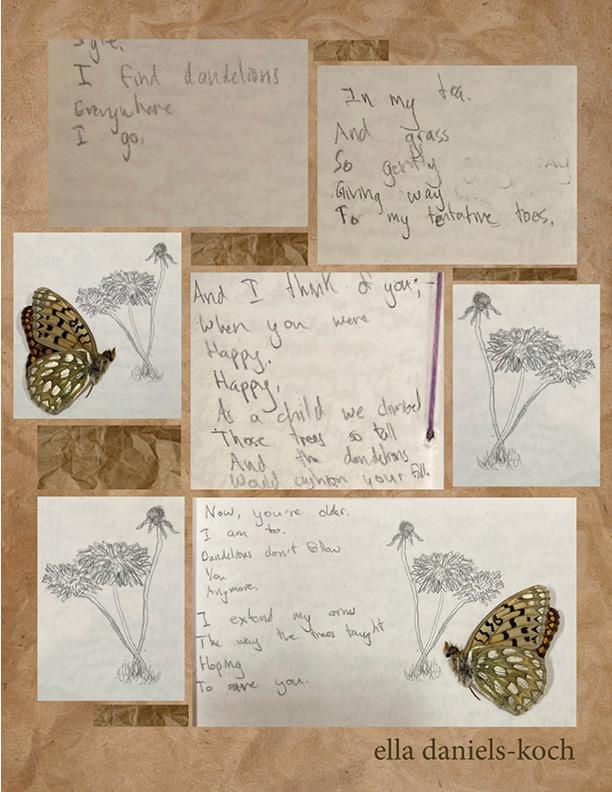 Style.
I find dandelions
Everywhere
I go.
In my tea.
And grass
So gently
Giving way
To my tentative toes.
And I think of you;-
When you were
Happy.
Happy.
As a child we climbed
Those trees so tall
And the dandelions
Would cushion your fall.
Now, you're older.
I am to.
Dandelions don't follow
You
Anymore.
I extend my arms
The way the trees taught
Hoping
To save you.
ella daniels-koch